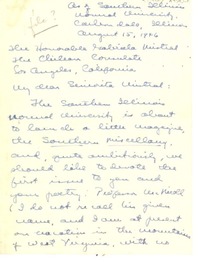 file?
℅ Southern Illinois
Normal University,
Carbondale, Illinois
August 15, 1946
The Honorable Gabriela Mistral
The Chilean Consulate
Los Angeles, California
My dear Senorita Mistral:
The Southern Illinois
Normal University is about
to launch a little magazine,
the Southern Miscellany,
and, quite ambitiously, we
should like to devote the
first issue to you and
your poetry. Professor
(I do not recall his given
name, and I am at present
on vacation in the mountains
of West Virginia, with no